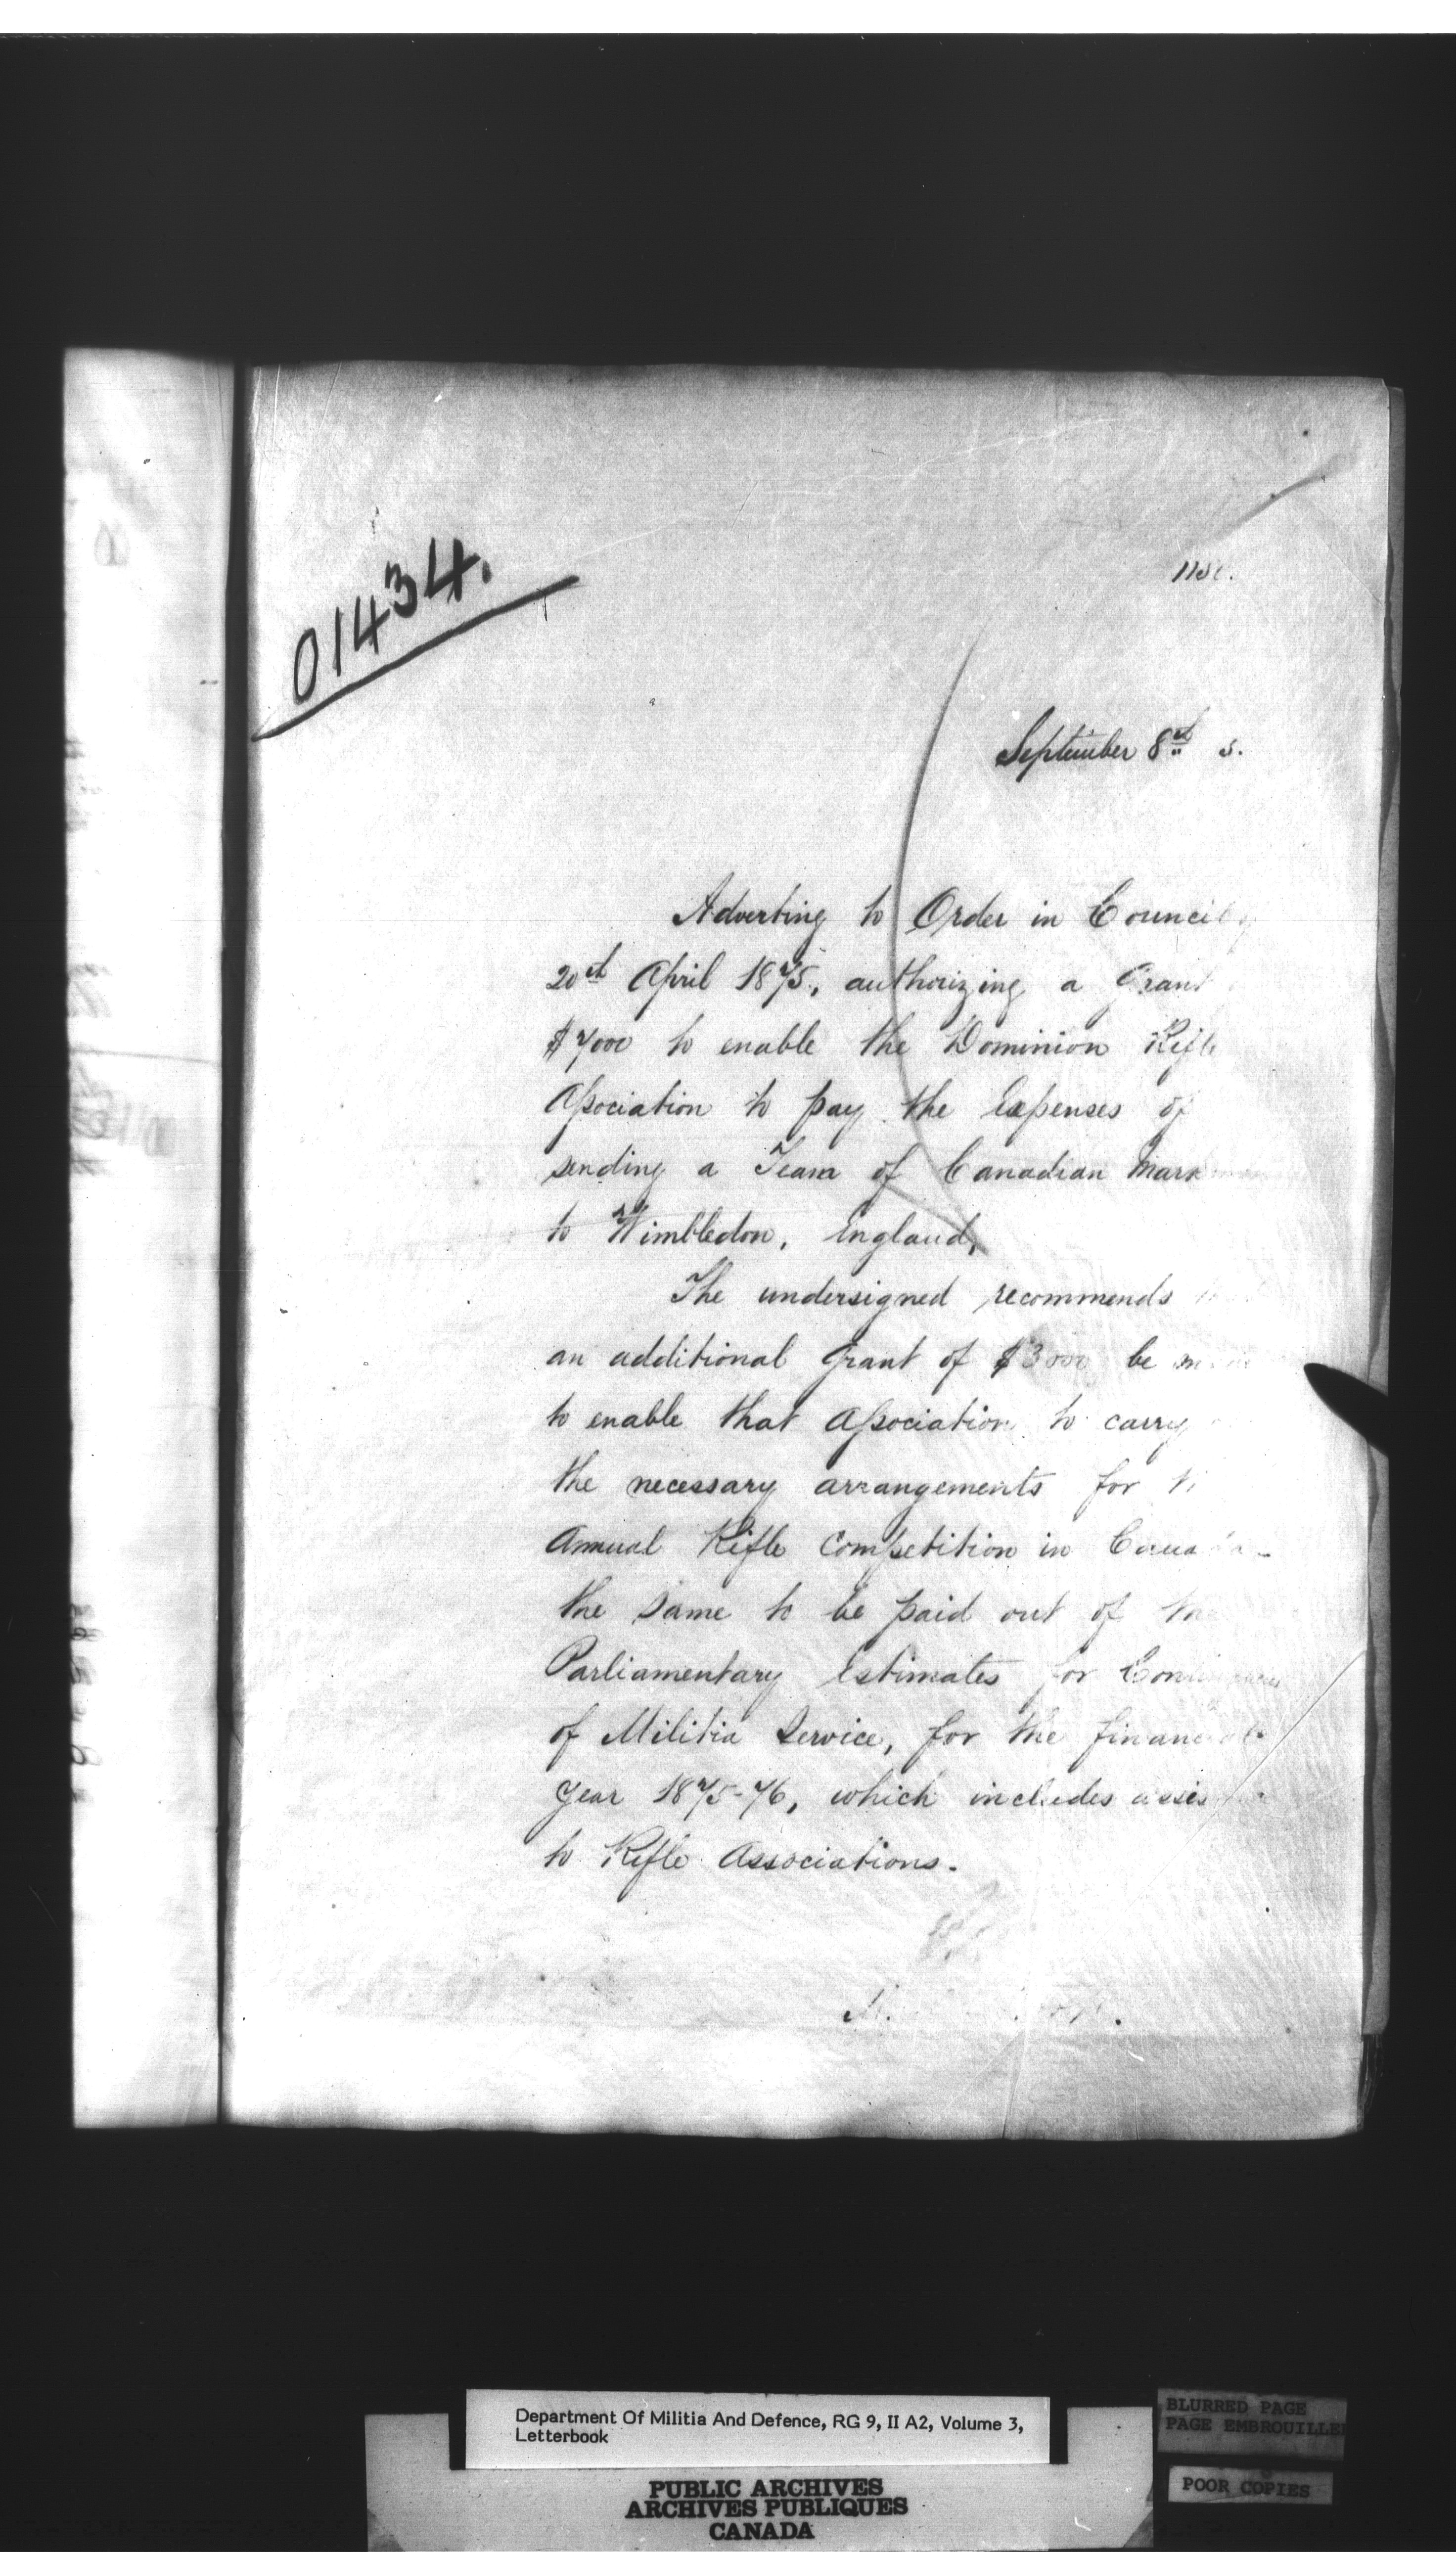 01434.
September 8th 5.
Adverting to Order in Council
20th April 1875, authorizing a Grant
$7000 to enable the Dominion Rifle
Association to pay the Expenses of
sending a Team of Canadian
to Wimbledon, England,
The undersigned recommends
an additional Grant of $3000 be
to enable that Association to carry
the necessary arrangements for
Annual Rifle Competition in Canada
the same to be paid out of the
Parliamentary Estimates for
of Militia Service, for the financial
year 1875-76, which includes
to Rifle Associations.
Department Of Militia And Defence, RG 9, II A2, Volume 3,
Letterbook
BLURRED PAGE
PAGE EMBROUILLE
POOR COPIES
PUBLIC ARCHIVES
ARCHIVES PUBLIQUES
CANADA